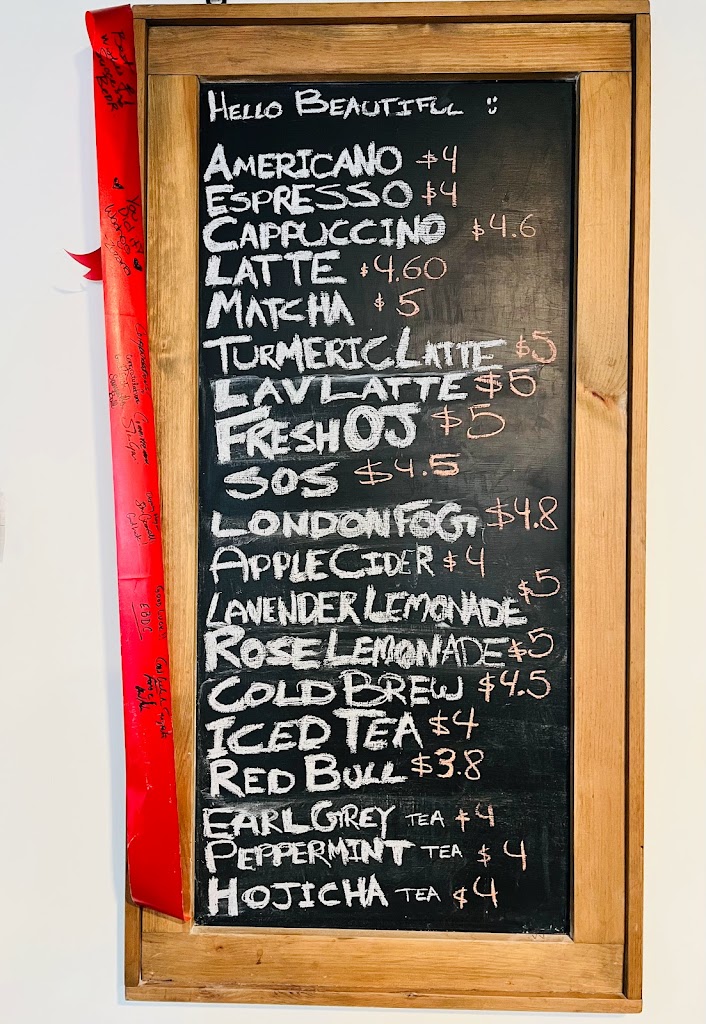 HELLO BEAUTIFUL :)
AMERICANO $4
ESPRESSO $4
CAPPUCCINO $4.6
LATTE $4.60
MATCHA $5
TURMERIC LATTE $5
LAV LATTE $5
FRESH OJ $5
SOS $4.5
LONDON FOG $4.8
APPLE CIDER $4
LAVENDER LEMONADE $5
ROSE LEMONADE $5
COLD BREW $4.5
ICED TEA $4
RED BULL $3.8
EARL GREY TEA $4
PEPPERMINT TEA $4
HOJICHA TEA $4